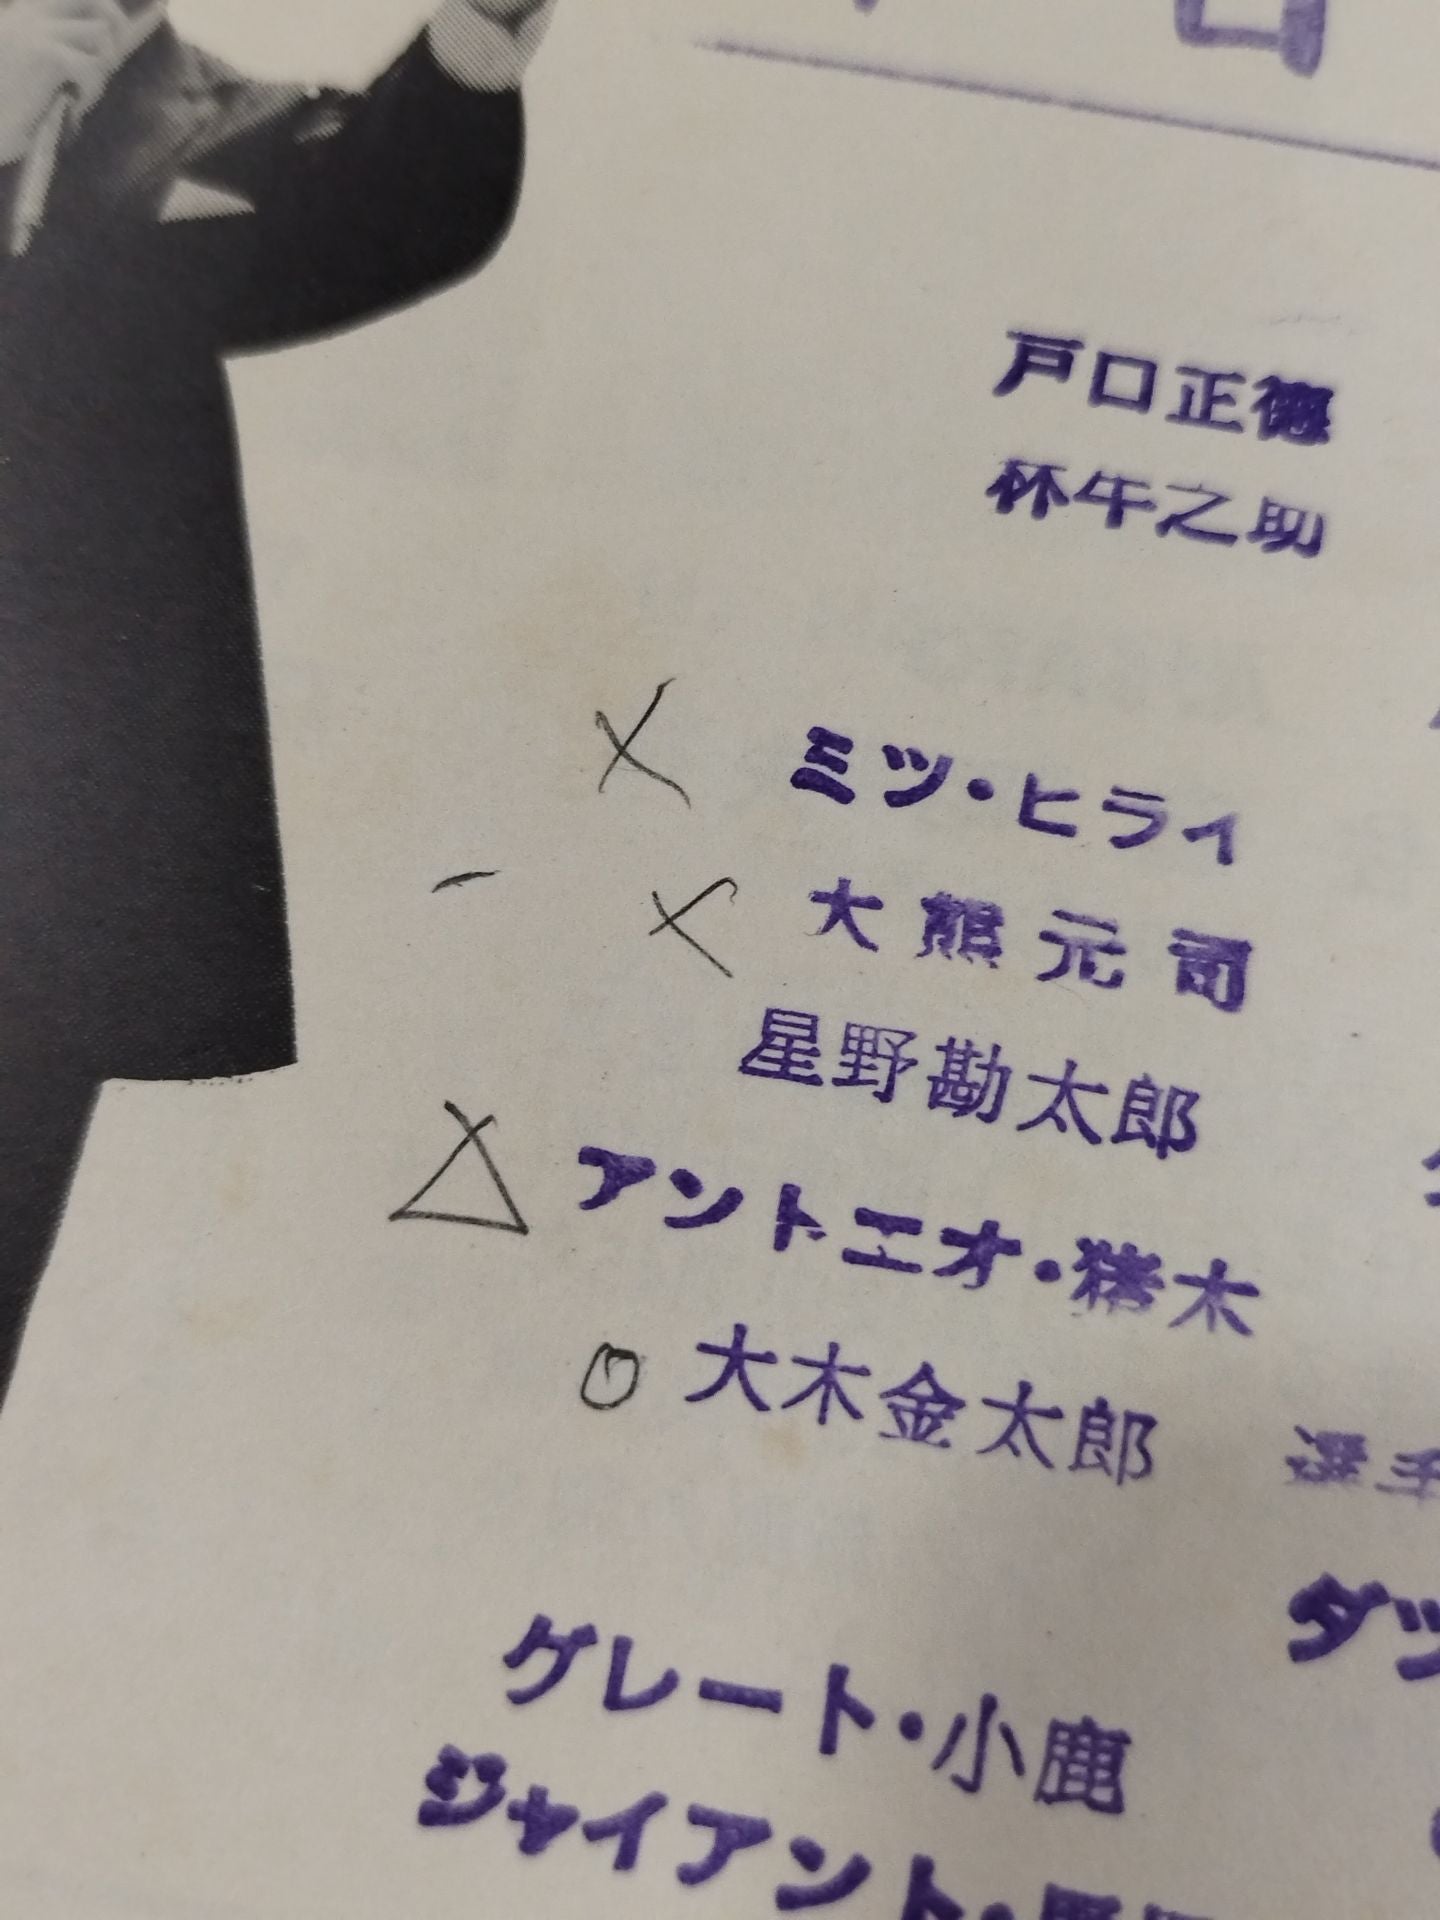 戸口正徳
林牛之助
× ミツ・ヒライ
× 大熊元司
星野勘太郎
△ アントニオ・猪木
○ 大木金太郎 選手
グレート・小鹿
ジャイアント・馬場